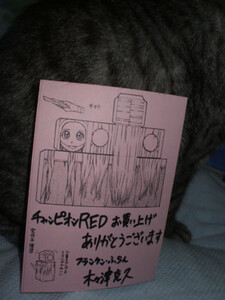 チャンピオンRED お買い上げ
ありがとうございます
フランケン・ふらん
木々津克久